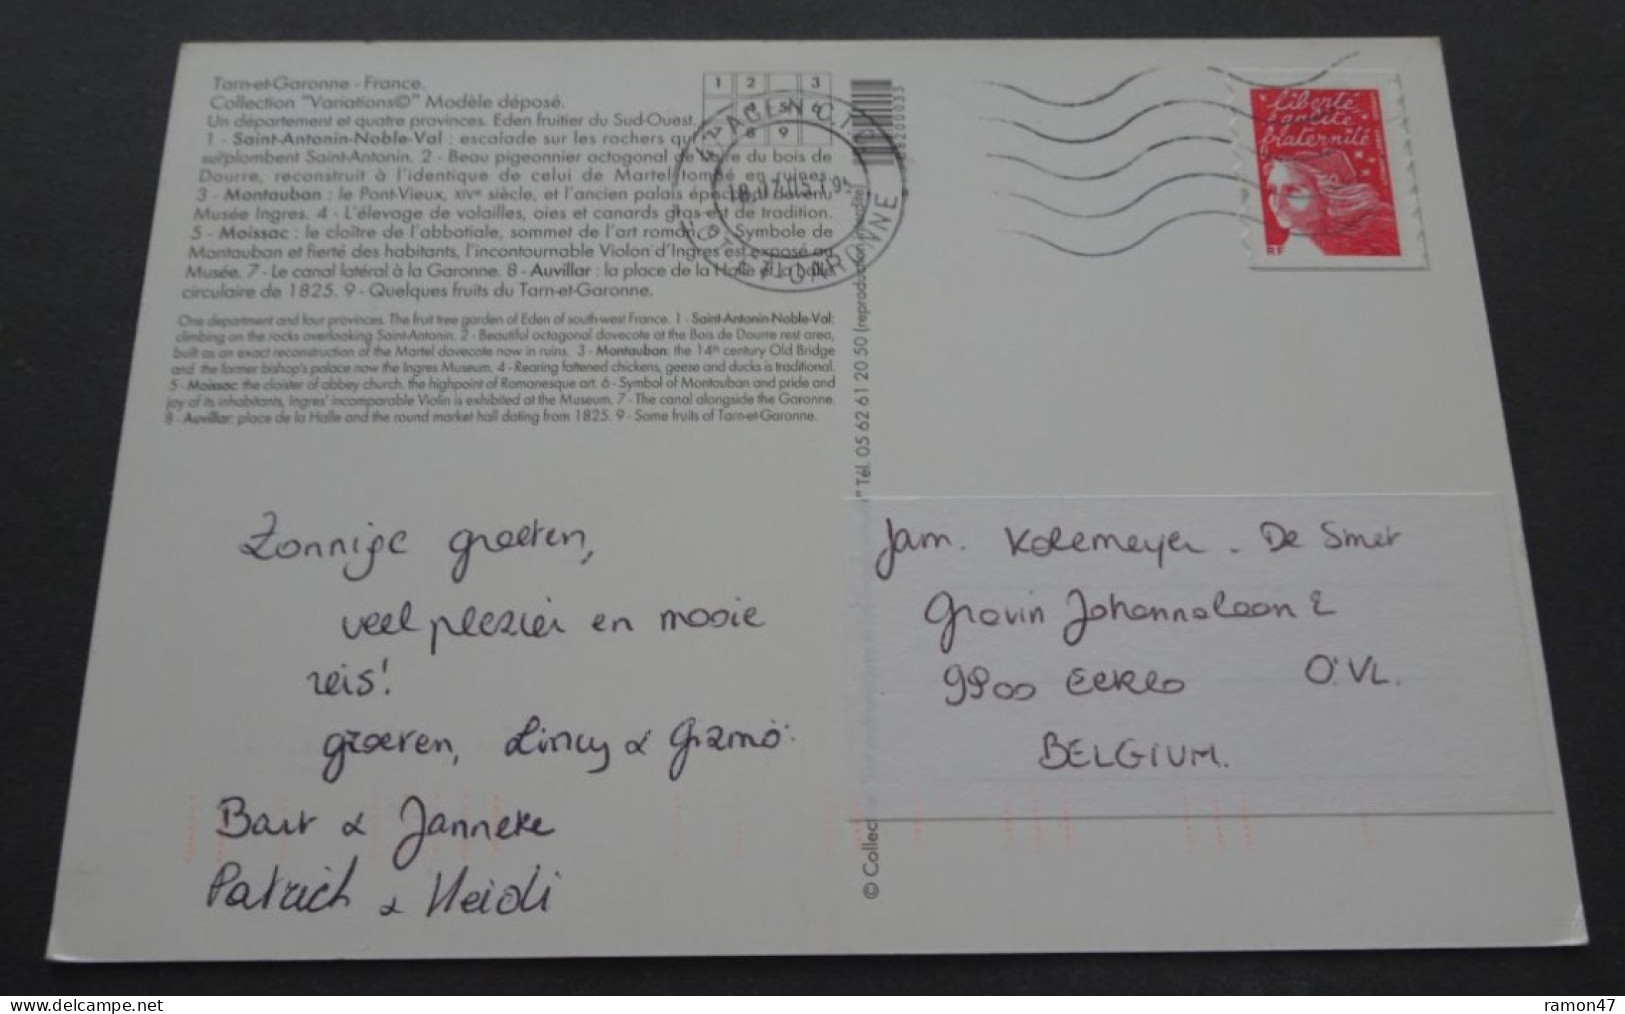 Tarn-et-Garonne - France.
Collection "Variations©" Modèle déposé.
Un département et quatre provinces. Eden fruitier du Sud-Ouest.
1 - Saint-Antonin-Noble-Val : escalade sur les rochers qui
surplombent Saint-Antonin. 2 - Beau pigeonnier octogonal de l'aire du bois de
Dourre, reconstruit à l'identique de celui de Martel tombé en ruines.
3 - Montauban : le Pont-Vieux, XIVe siècle, et l'ancien palais épiscopal devenu
Musée Ingres. 4 - L'élevage de volailles, oies et canards gras est de tradition.
5 - Moissac : le cloître de l'abbatiale, sommet de l'art roman. 6 - Symbole de
Montauban et fierté des habitants, l'incontournable Violon d'Ingres est exposé au
Musée. 7 - Le canal latéral à la Garonne. 8 - Auvillar : la place de la Halle et la halle
circulaire de 1825. 9 - Quelques fruits du Tarn-et-Garonne.
One department and four provinces. The fruit tree garden of Eden of south-west France. 1 - Saint-Antonin-Noble-Val:
climbing on the rocks overlooking Saint-Antonin. 2 - Beautiful octagonal dovecote at the Bois de Dourre rest area,
built as an exact reconstruction of the Martel dovecote now in ruins. 3 - Montauban: the 14th century Old Bridge
and the former bishop's palace now the Ingres Museum. 4 - Rearing fattened chickens, geese and ducks is traditional.
5 - Moissac: the cloister of abbey church, the highpoint of Romanesque art. 6 - Symbol of Montauban and pride and
joy of its inhabitants, Ingres' incomparable Violin is exhibited at the Museum. 7 - The canal alongside the Garonne.
8 - Auvillar: place de la Halle and the round market hall dating from 1825. 9 - Some fruits of Tarn-et-Garonne.
1 2 3
8 9
AGEN C.T.
18.07.05
LOT ET GARONNE
82000033
liberté
égalité
fraternité
RF
© Collec
" Tél. 05 62 61 20 50 (reproduction interdite)
Zonnige groeten,
veel plezier en mooie
reis!
groeten, Lincy & Gizmo
Bart & Janneke
Patrick & Heidi
Jam. Kolemeyer - De Smet
Gravin Johannalaan 2
9900 Eeklo O.VL.
BELGIUM.
ramon47